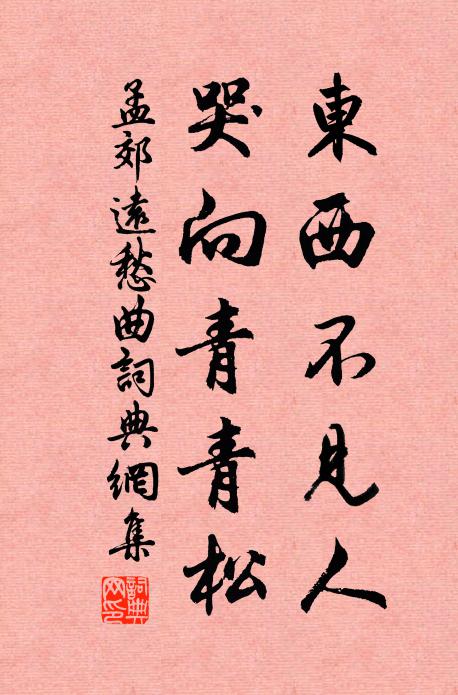 東西不見人
哭向青青松
孟郊遠愁曲詞典網集
詞典网印